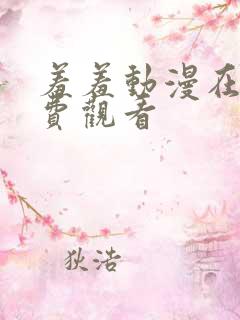 羞羞動漫在
費觀看
狄浩